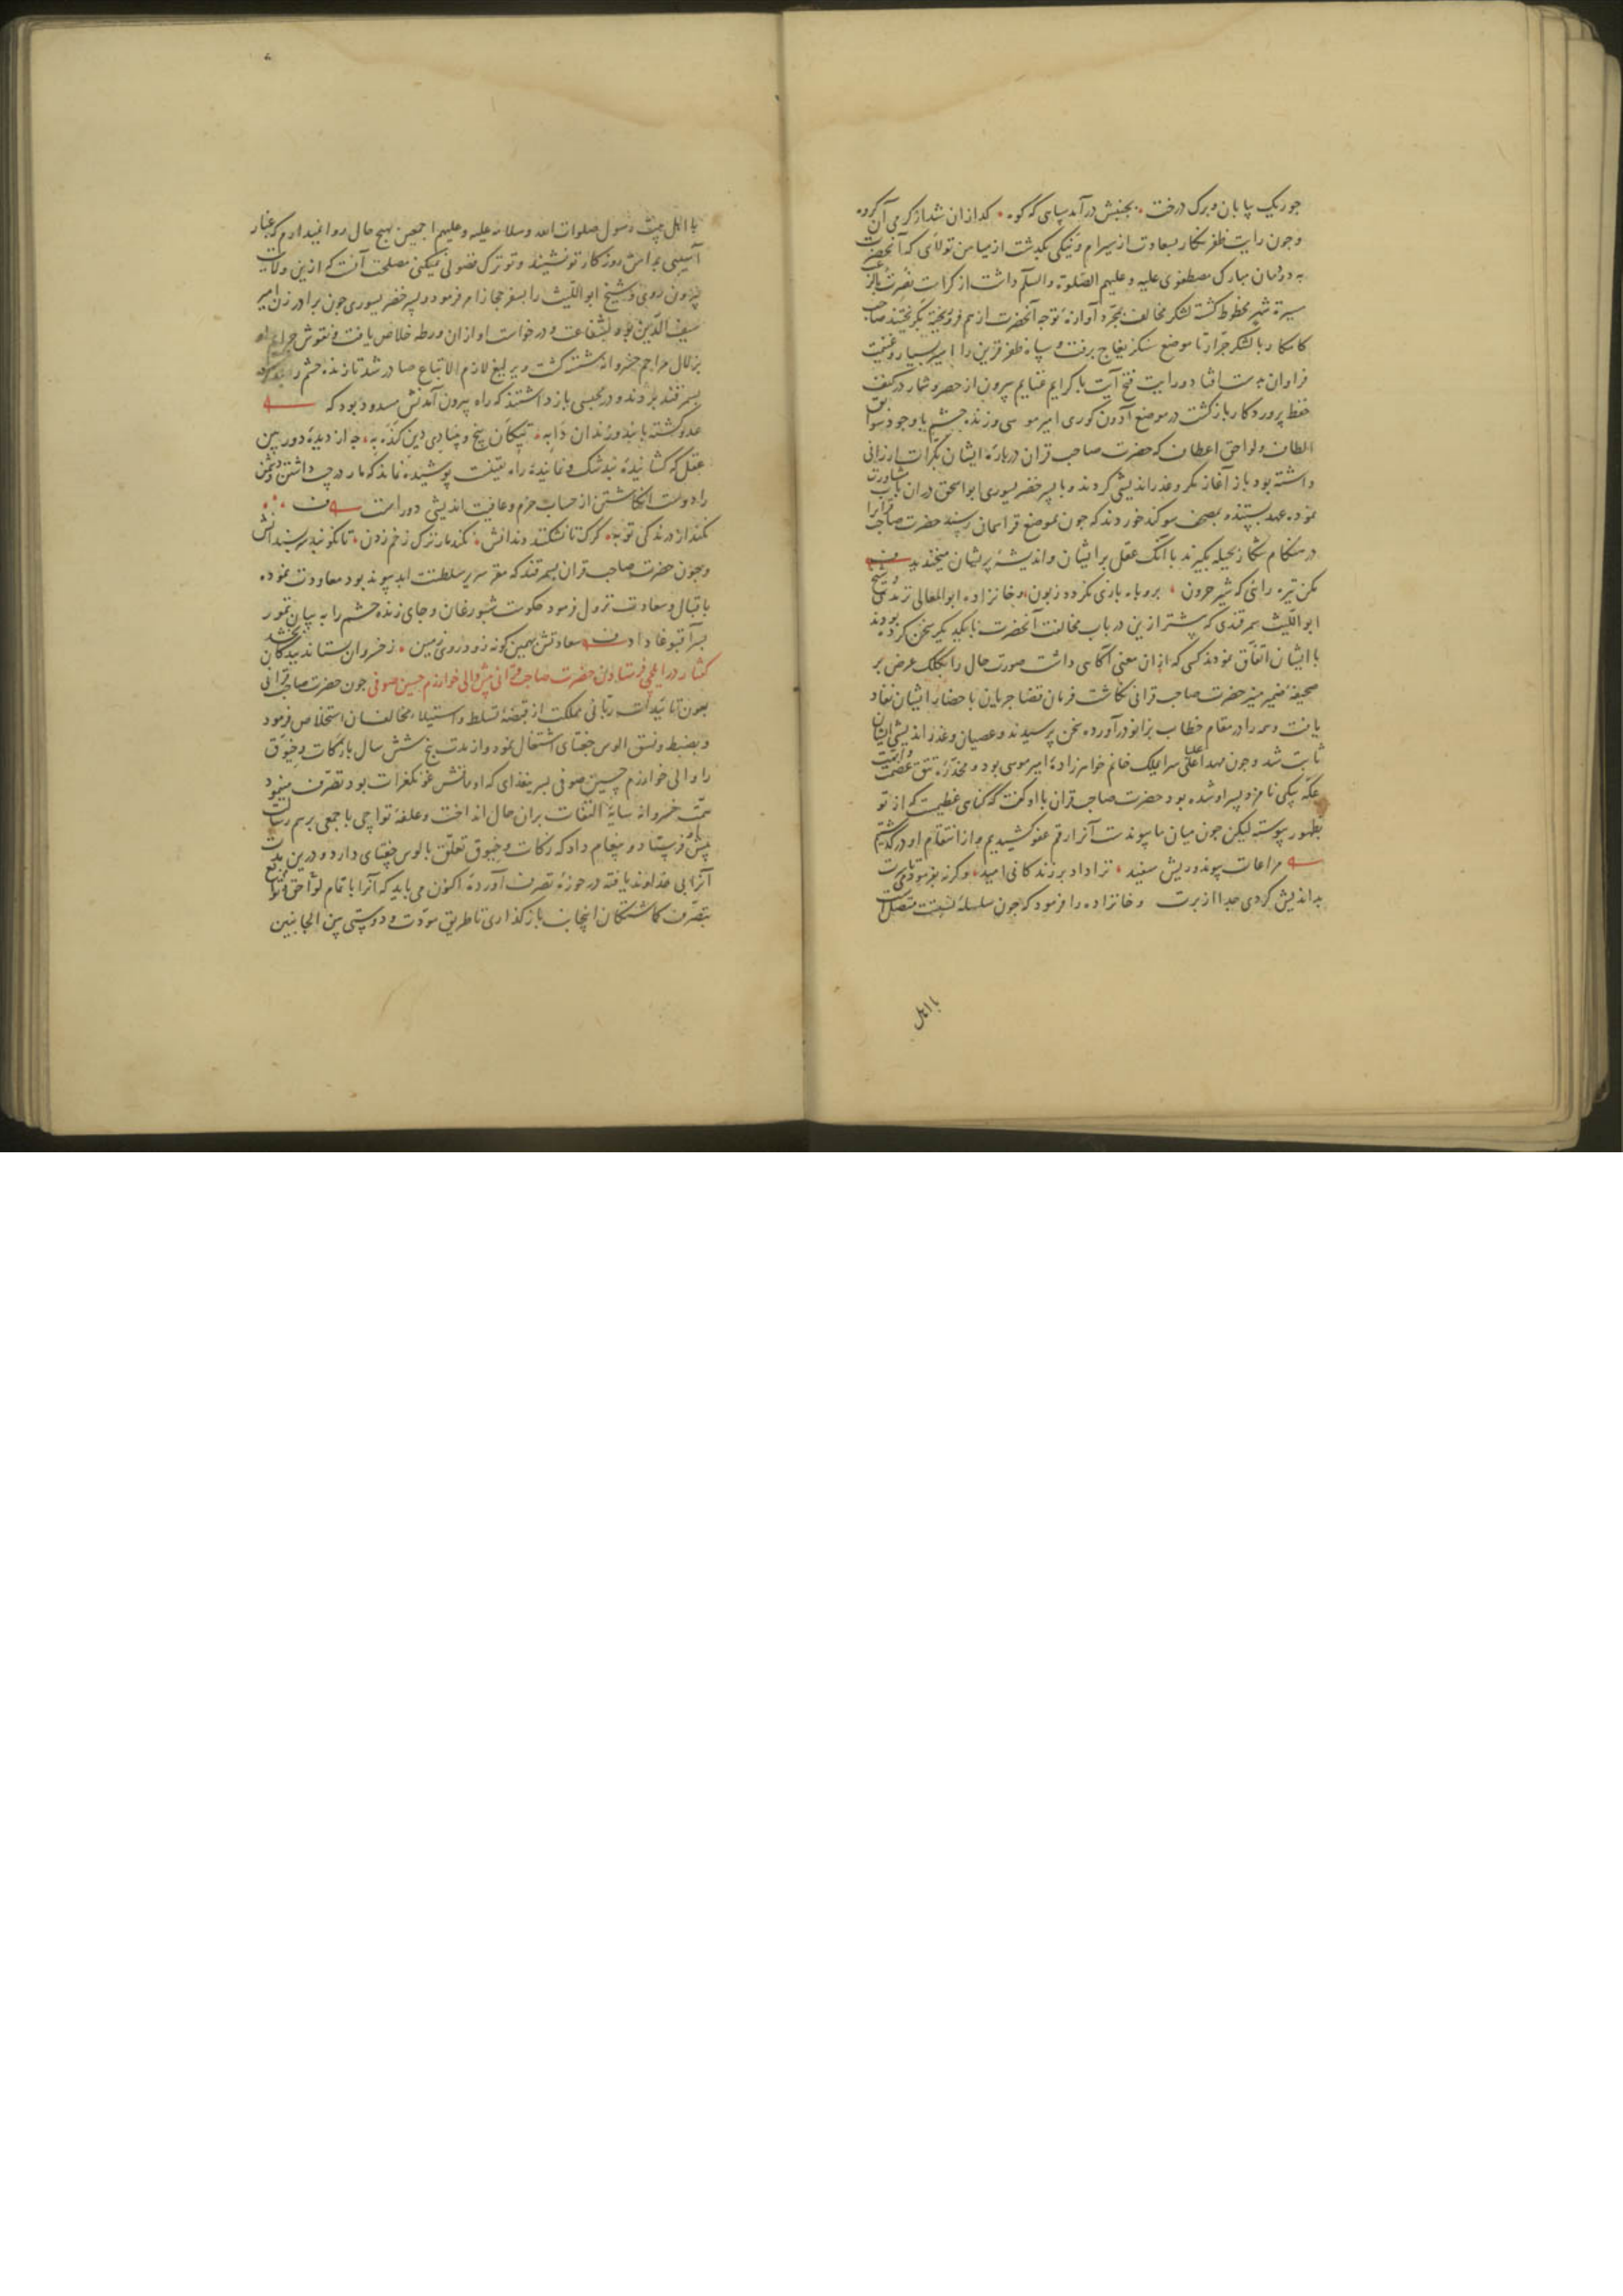 چو ریک بیابان و برک درخت بجنبش درآمد سپاهی که کوه کدازان شد از کرمی آن کروه
و چون رایت ظفر نکار بسعادت از سیرام و نیکی بکذشت از میامن تولای که آنحضرت
به دودمان مبارک مصطفوی علیه و علیهم الصلوة والسلم داشت از کرامت نصرت بالرعب
مسیرة شهر محظوظ کشته لشکر مخالف بمجرد آوازهٔ توجه آنحضرت از هم فرو ریخته بکریختند صاحب
کامکار با لشکر جرار تا موضع سنکز یغاج برفت و سپاه ظفر قرین را اسیر بسیار و غنیمت
فراوان بدست افتاد و رایت فتح آیت با کرایم غنایم بیرون از حصر و شمار در کنف
حفظ پروردکار بازکشت در موضع آدون کوری امیر موسی و زنده حشم با وجود سوابق
الطاف و لواحق اعطاف که حضرت صاحب قران دربارهٔ ایشان بکرات ارزانی
داشته بود باز آغاز مکر و غدر اندیشی کردند و با پسر خضر یسوری ابواسحق در ان باب مشاورت
نموده عهد بستند و بمصحف سوکند خوردند که چون بموضع قراسمان رسند حضرت صاحب قرانرا
در هنکام شکار بحیله بکیرند با آنک عقل بر ایشان و اندیشهٔ پریشان میخندید
مکن تیره رائی که شیر حرون بروباه بازی نکردد زبون و خانزاده ابوالمعالی ترمدی و شیخ
ابواللیث سمرقندی که پیشتر ازین در باب مخالفت آنحضرت با یکدیکر سخن کرده بودند
با ایشان اتفاق نمودند کسی که ازان معنی آکاهی داشت صورت حال را بکلک عرض بر
صحیفهٔ ضمیر منیر حضرت صاحب قرانی نکاشت فرمان قضا جریان باحضار ایشان نفاد
یافت و همه را در مقام خطاب بزانو درآورده سخن پرسیدند و عصیان و غدر اندیشی ایشان
ثابت شد و چون مهد اعلی سرای ملک خانم خواهرزادهٔ امیر موسی بود و مخدرهٔ تتق عصمت
عکه بیکی نامزد پسر او شده بود حضرت صاحب قران با او کفت که کناهی عظیمست که از تو
بظهور پیوسته لیکن چون میان ما پیوندست آنرا رقم عفو کشیدیم و از انتقام او درکذشتیم
مراعات پیوند و ریش سفید ترا داد بر زندکانی امید وکرنه بفرمودمی تا سرت
بداندیش کردی جدا از برت و خانزاده را فرمود که چون سلسلهٔ نسبت متصل است
با اهل
با اهل بیت رسول صلوات الله و سلامه علیه و علیهم اجمعین بهیچ حال روا نمیدارم که غبار
آسیبی بدامن روزکار تو نشیند و تو ترک فضولی نمیکنی مصلحت آنست که ازین ولایت
بیرون روی و شیخ ابواللیث را بسفر حجاز امر فرمود و پسر خضر یسوری چون برادر زن امیر
سیف الدین بود بشفاعت و درخواست او ازان ورطه خلاص یافت و نقوش جرایم او
بزلال مراحم خسروانه شسته کشت و یرلیغ لازم الاتباع صادر شد تا زنده حشم را بند کرده
بسمرقند بردند و در محبسی بازداشتند که راه بیرون آمدنش مسدود بود که
عدو کشته یا بند و زندان دابه بپیکان بیخ و بنیاد دین کنده به چه از دیدهٔ دوربین
عقل که کشایندهٔ بند شک و نمایندهٔ راه حقیقت پوشیده نماند که مار در جیب داشتن و دشمن
را دوست انکاشتن از حساب حزم و عاقبت اندیشی دور است
نکند از درندکی توبه کرک تا نشکنند دندانش نکند مار ترک زخم زدن تا نکوبند سر بسندانش
و چون حضرت صاحب قران بسمرقند که مقر سریر سلطنت ابد پیوند بود معاودت نموده
باقبال و سعادت نزول فرمود حکومت شبورغان و جای زنده حشم را به بیان تمور
پسر آقبوغا داد سعادتش بهمین کونه زود روی زمین ز خسروان بستاند ببندکان بخشد
کفتار در ایلچی فرستادن حضرت صاحب قرانی پیش والی خوارزم حسین صوفی چون حضرت صاحب قرانی
بعون تاییدات ربانی مملکت از قبضهٔ تسلط و استیلاء مخالفان استخلاص فرمود
و بضبط و نسق الوس جغتای اشتغال نمود و از مدت پنج شش سال باز کات و خیوق
را والی خوارزم حسین صوفی پسر ینغدای که اوماقش غونکغرات بود تصرف مینمود
همت خسروانه سایهٔ التفات بران حال انداخت و علفهٔ تواچی با جمعی برسم رسالت
پیش او فرستاد و پیغام داد که کات و خیوق تعلق بالوس جغتای دارد و درین مدت
آنرا بی خداوند یافته در حوزهٔ تصرف آوردهٔ اکنون می باید که آنرا با تمام لواحق و توابع
بتصرف کماشتکان اینجانب بازکذاری تا طریق مودت و دوستی بین الجانبین